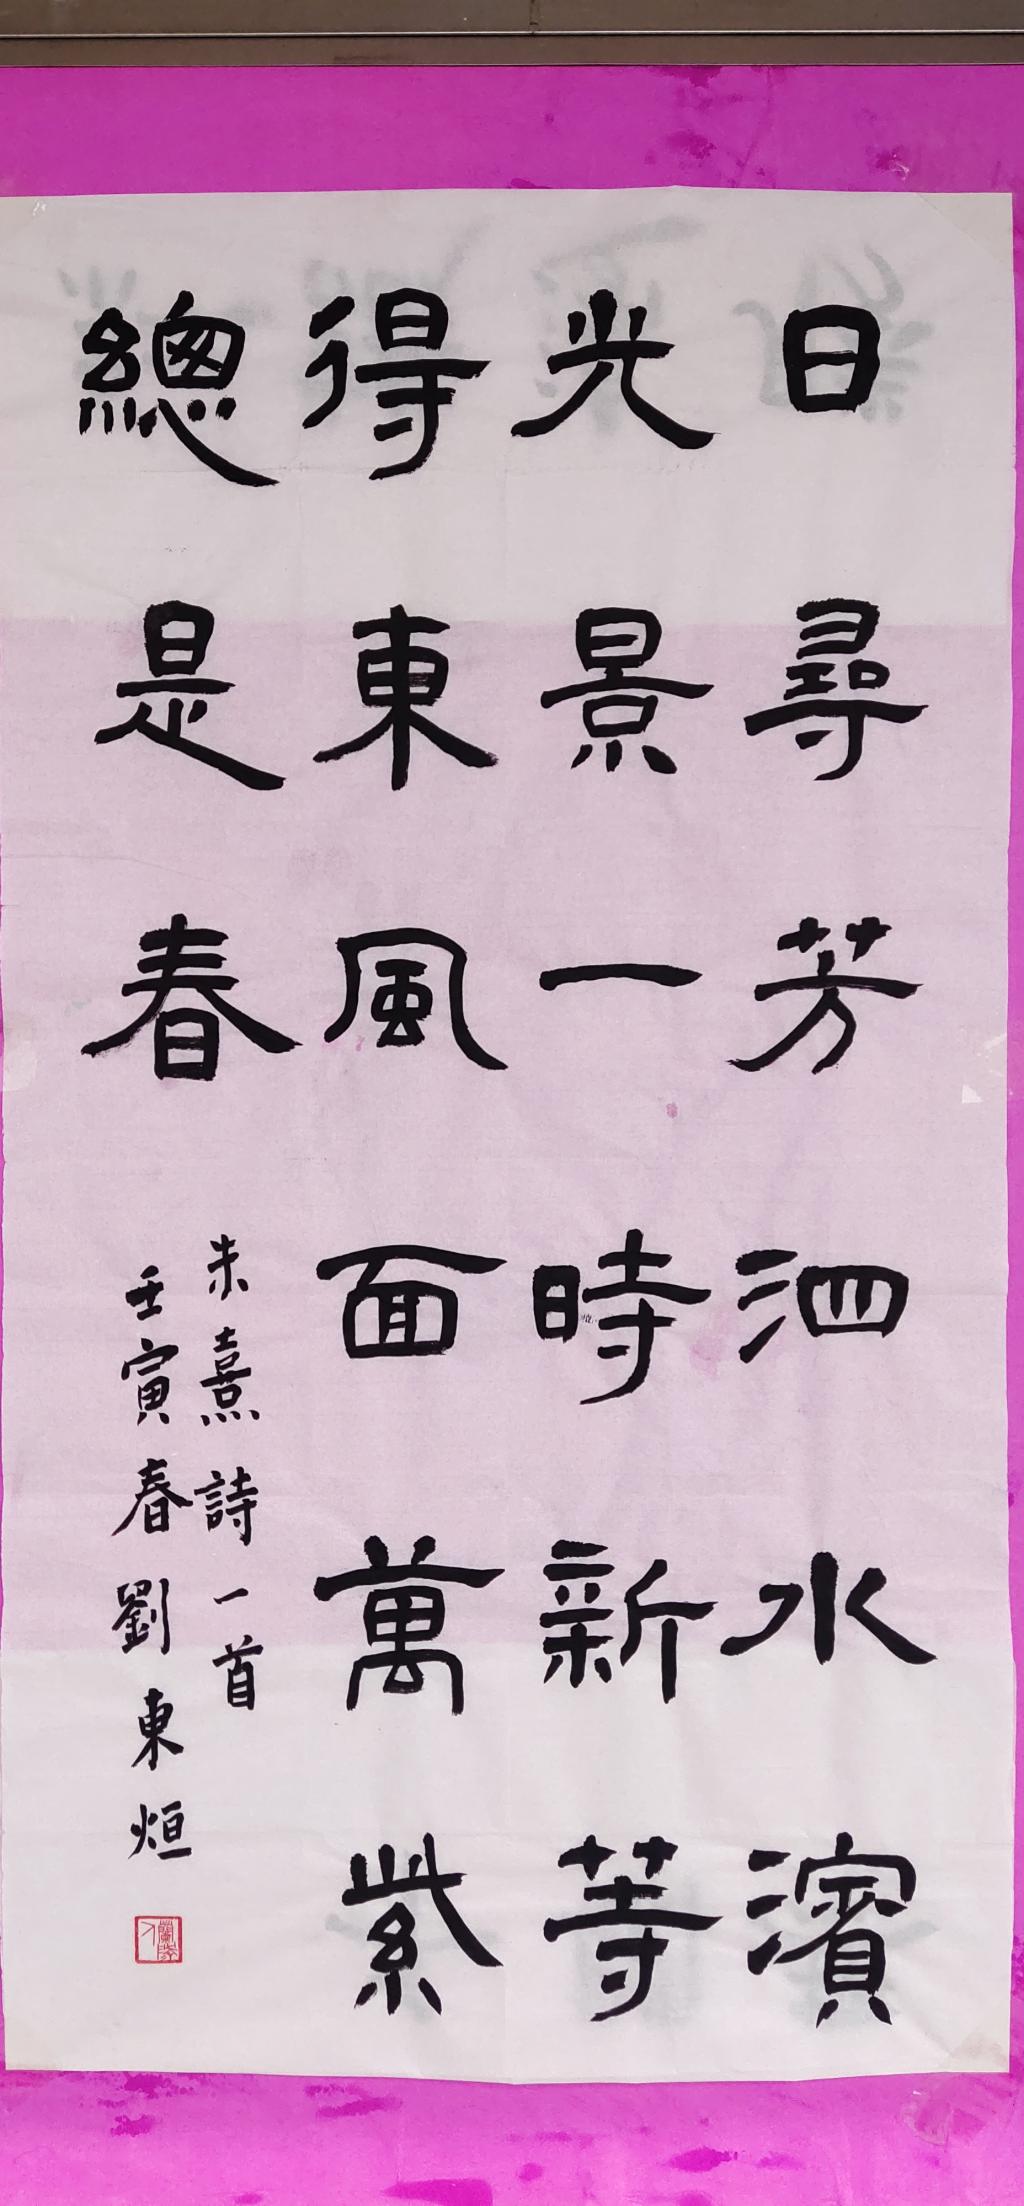 日尋芳泗水濱
光景一時新等
得東風面萬紫
總是春
朱熹詩一首
壬寅春劉東烜